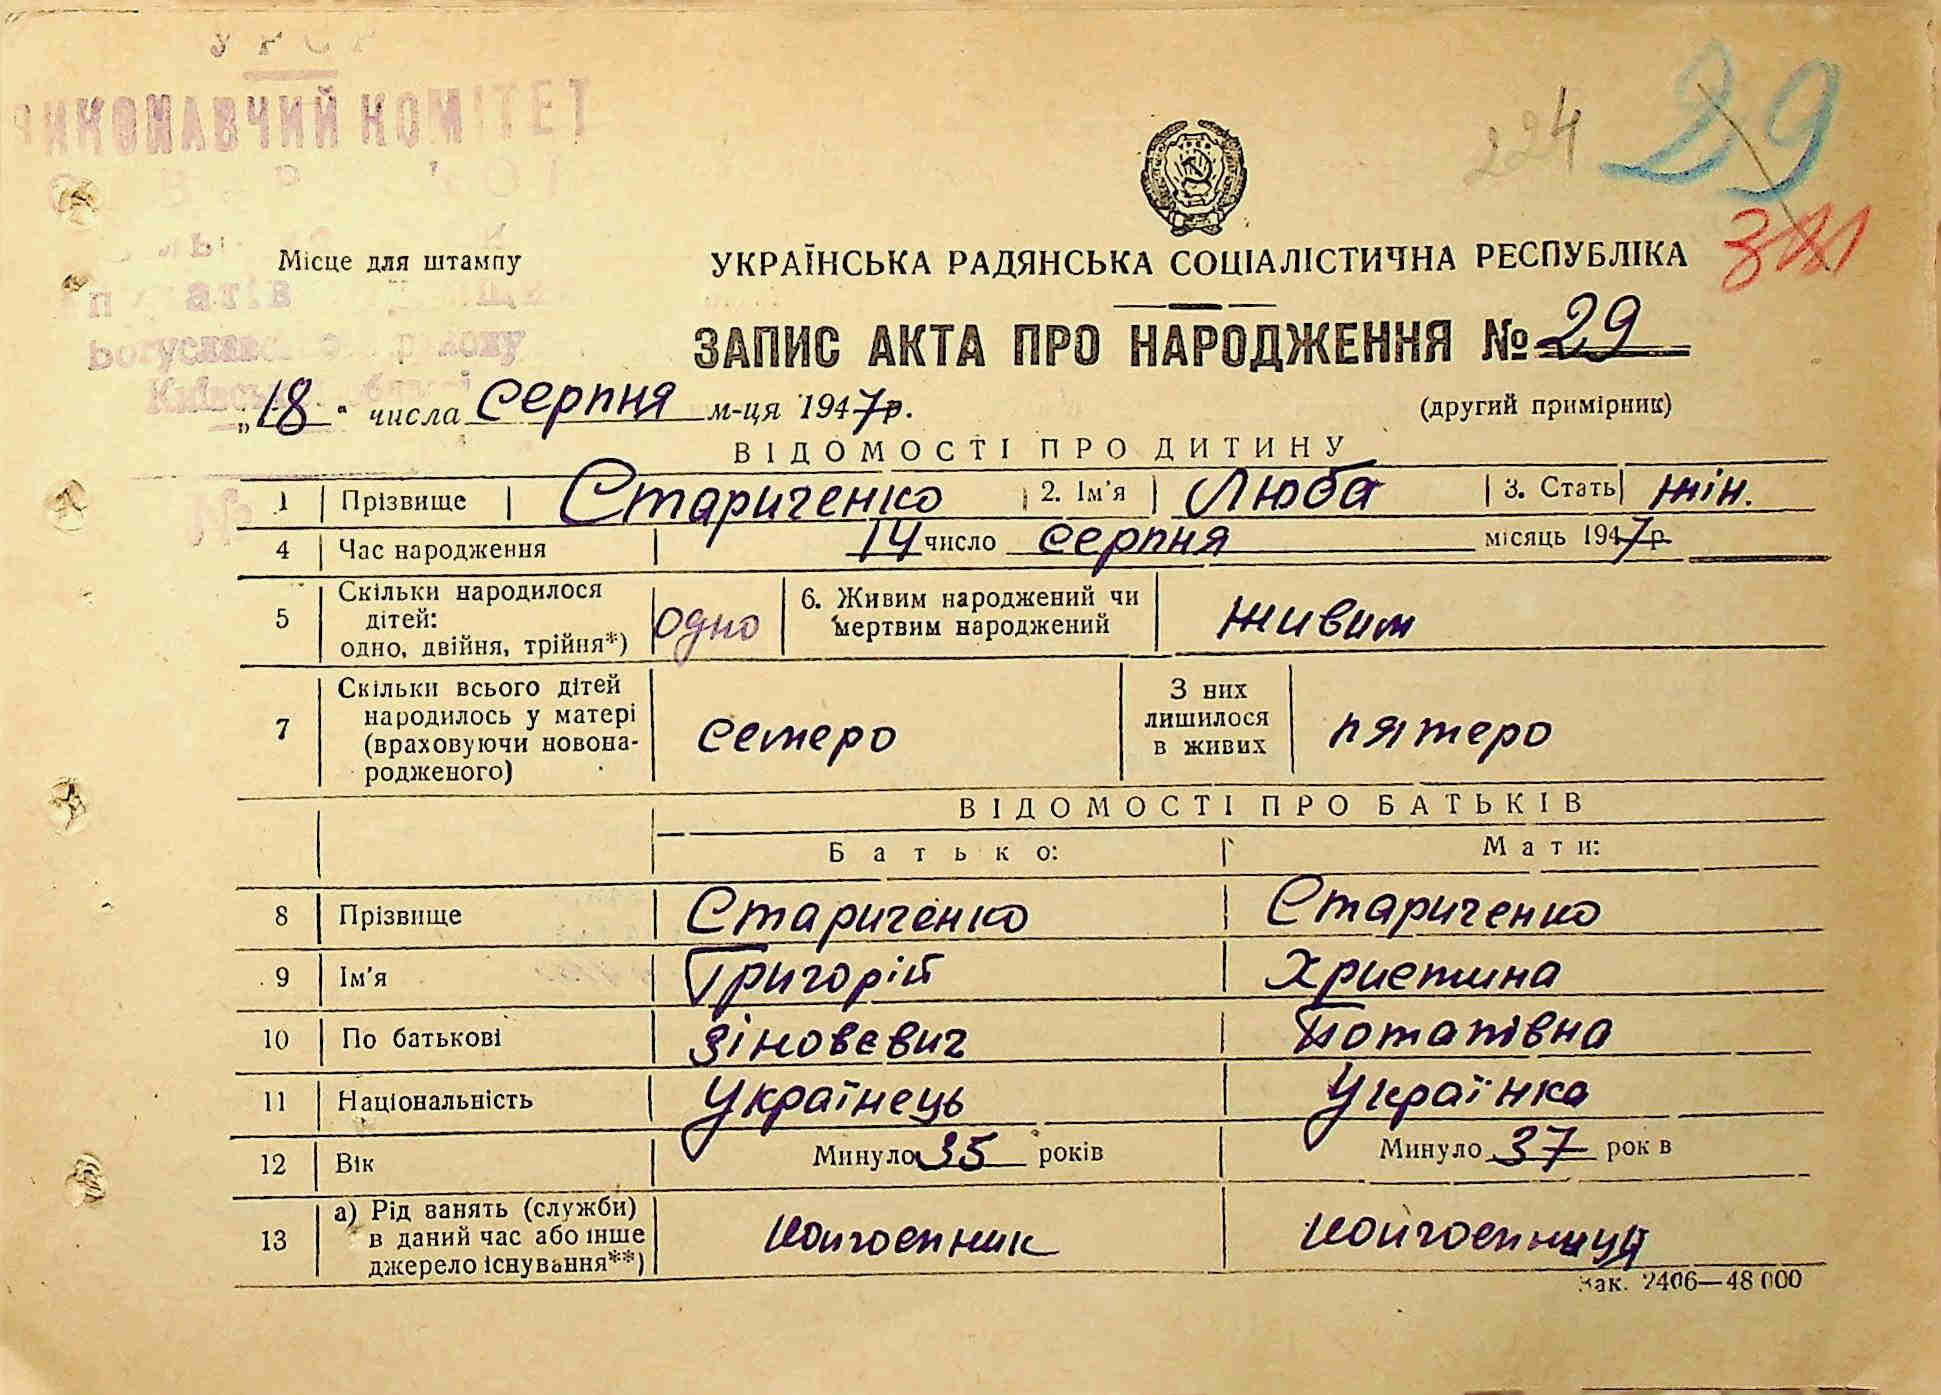 УРСР
ВИКОНАВЧИЙ КОМІТЕТ
Місце для штампу
Богуславського району
Київської області
224 29
311
УКРАЇНСЬКА РАДЯНСЬКА СОЦІАЛІСТИЧНА РЕСПУБЛІКА
ЗАПИС АКТА ПРО НАРОДЖЕННЯ № 29
„18" числа серпня м-ця 1947р. (другий примірник)
ВІДОМОСТІ ПРО ДИТИНУ
1 Прізвище Стариченко 2. Ім'я Люба 3. Стать жін.
4 Час народження 14 число серпня місяць 1947р.
5 Скільки народилося дітей: одно, двійня, трійня*) одно 6. Живим народжений чи мертвим народжений живим
7 Скільки всього дітей народилось у матері (враховуючи новонародженого) семеро З них лишилося в живих пятеро
ВІДОМОСТІ ПРО БАТЬКІВ
Батько: Мати:
8 Прізвище Стариченко Стариченко
9 Ім'я Григорій Христина
10 По батькові Зіновєвич Потапівна
11 Національність Українець Українка
12 Вік Минуло 35 років Минуло 37 рок в
13 а) Рід занять (служби) в даний час або інше джерело існування**) колгоспник колгоспниця
Зак. 2406—48 000